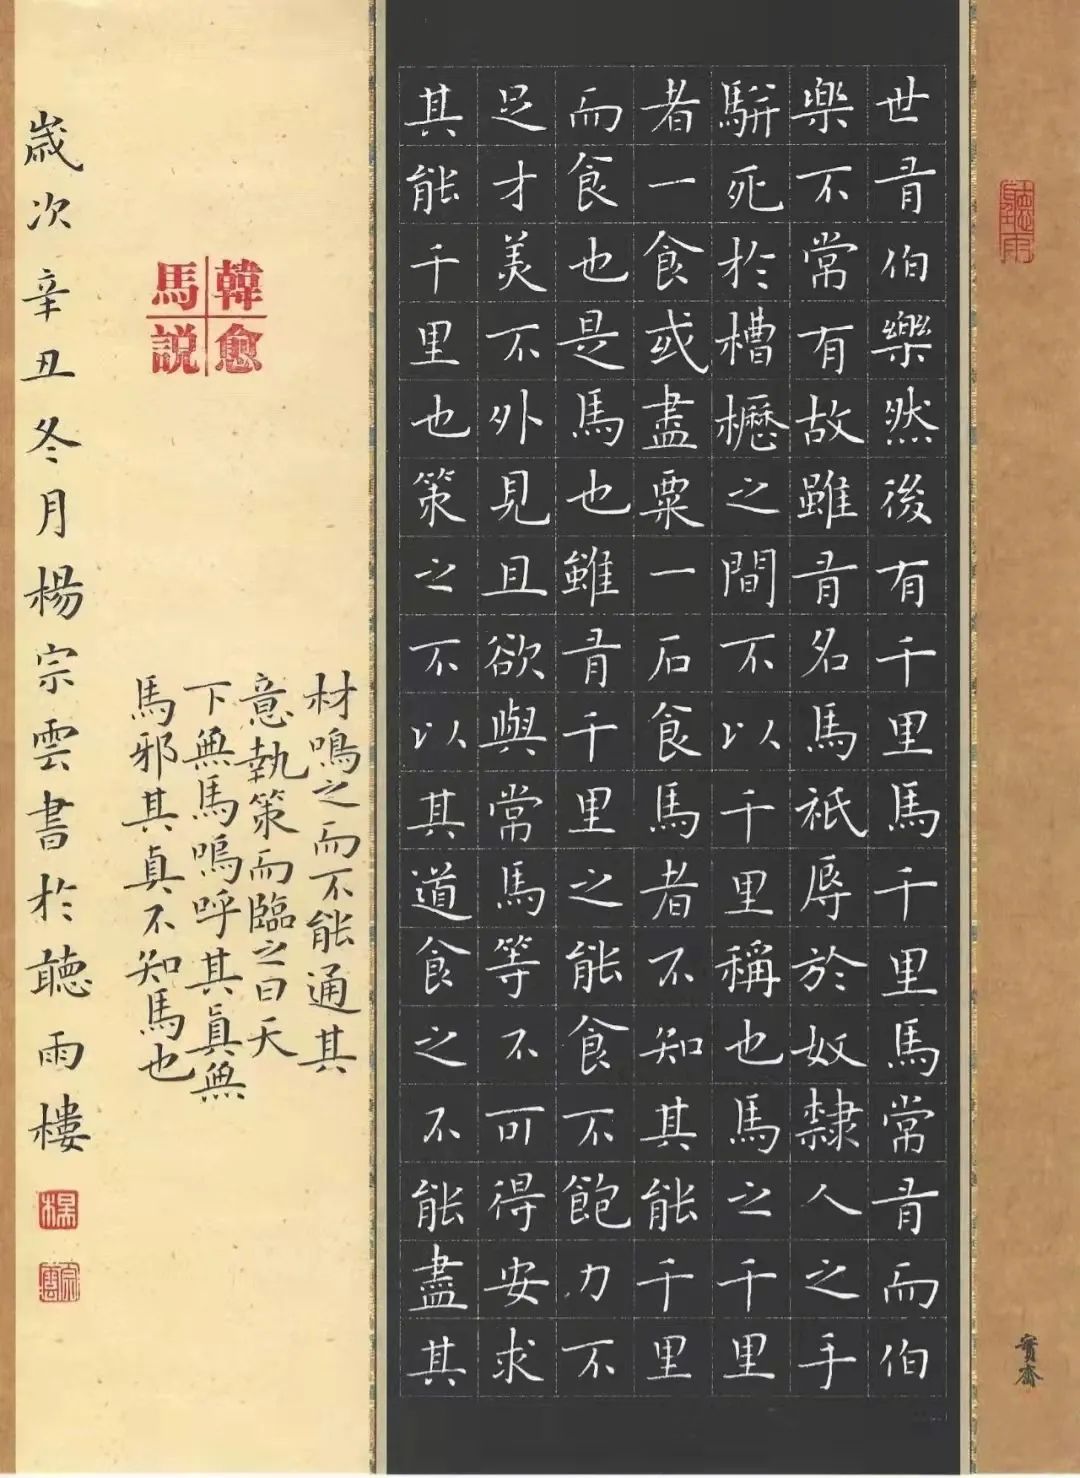 聽雨
世有伯樂然後有千里馬千里馬常有而伯
樂不常有故雖有名馬祇辱於奴隸人之手
駢死於槽櫪之間不以千里稱也馬之千里
者一食或盡粟一石食馬者不知其能千里
而食也是馬也雖有千里之能食不飽力不
足才美不外見且欲與常馬等不可得安求
其能千里也策之不以其道食之不能盡其
材鳴之而不能通其
意執策而臨之曰天
下無馬嗚呼其真無
馬邪其真不知馬也
韓愈
馬説
歲次辛丑冬月楊宗雲書於聽雨樓
楊
宗雲